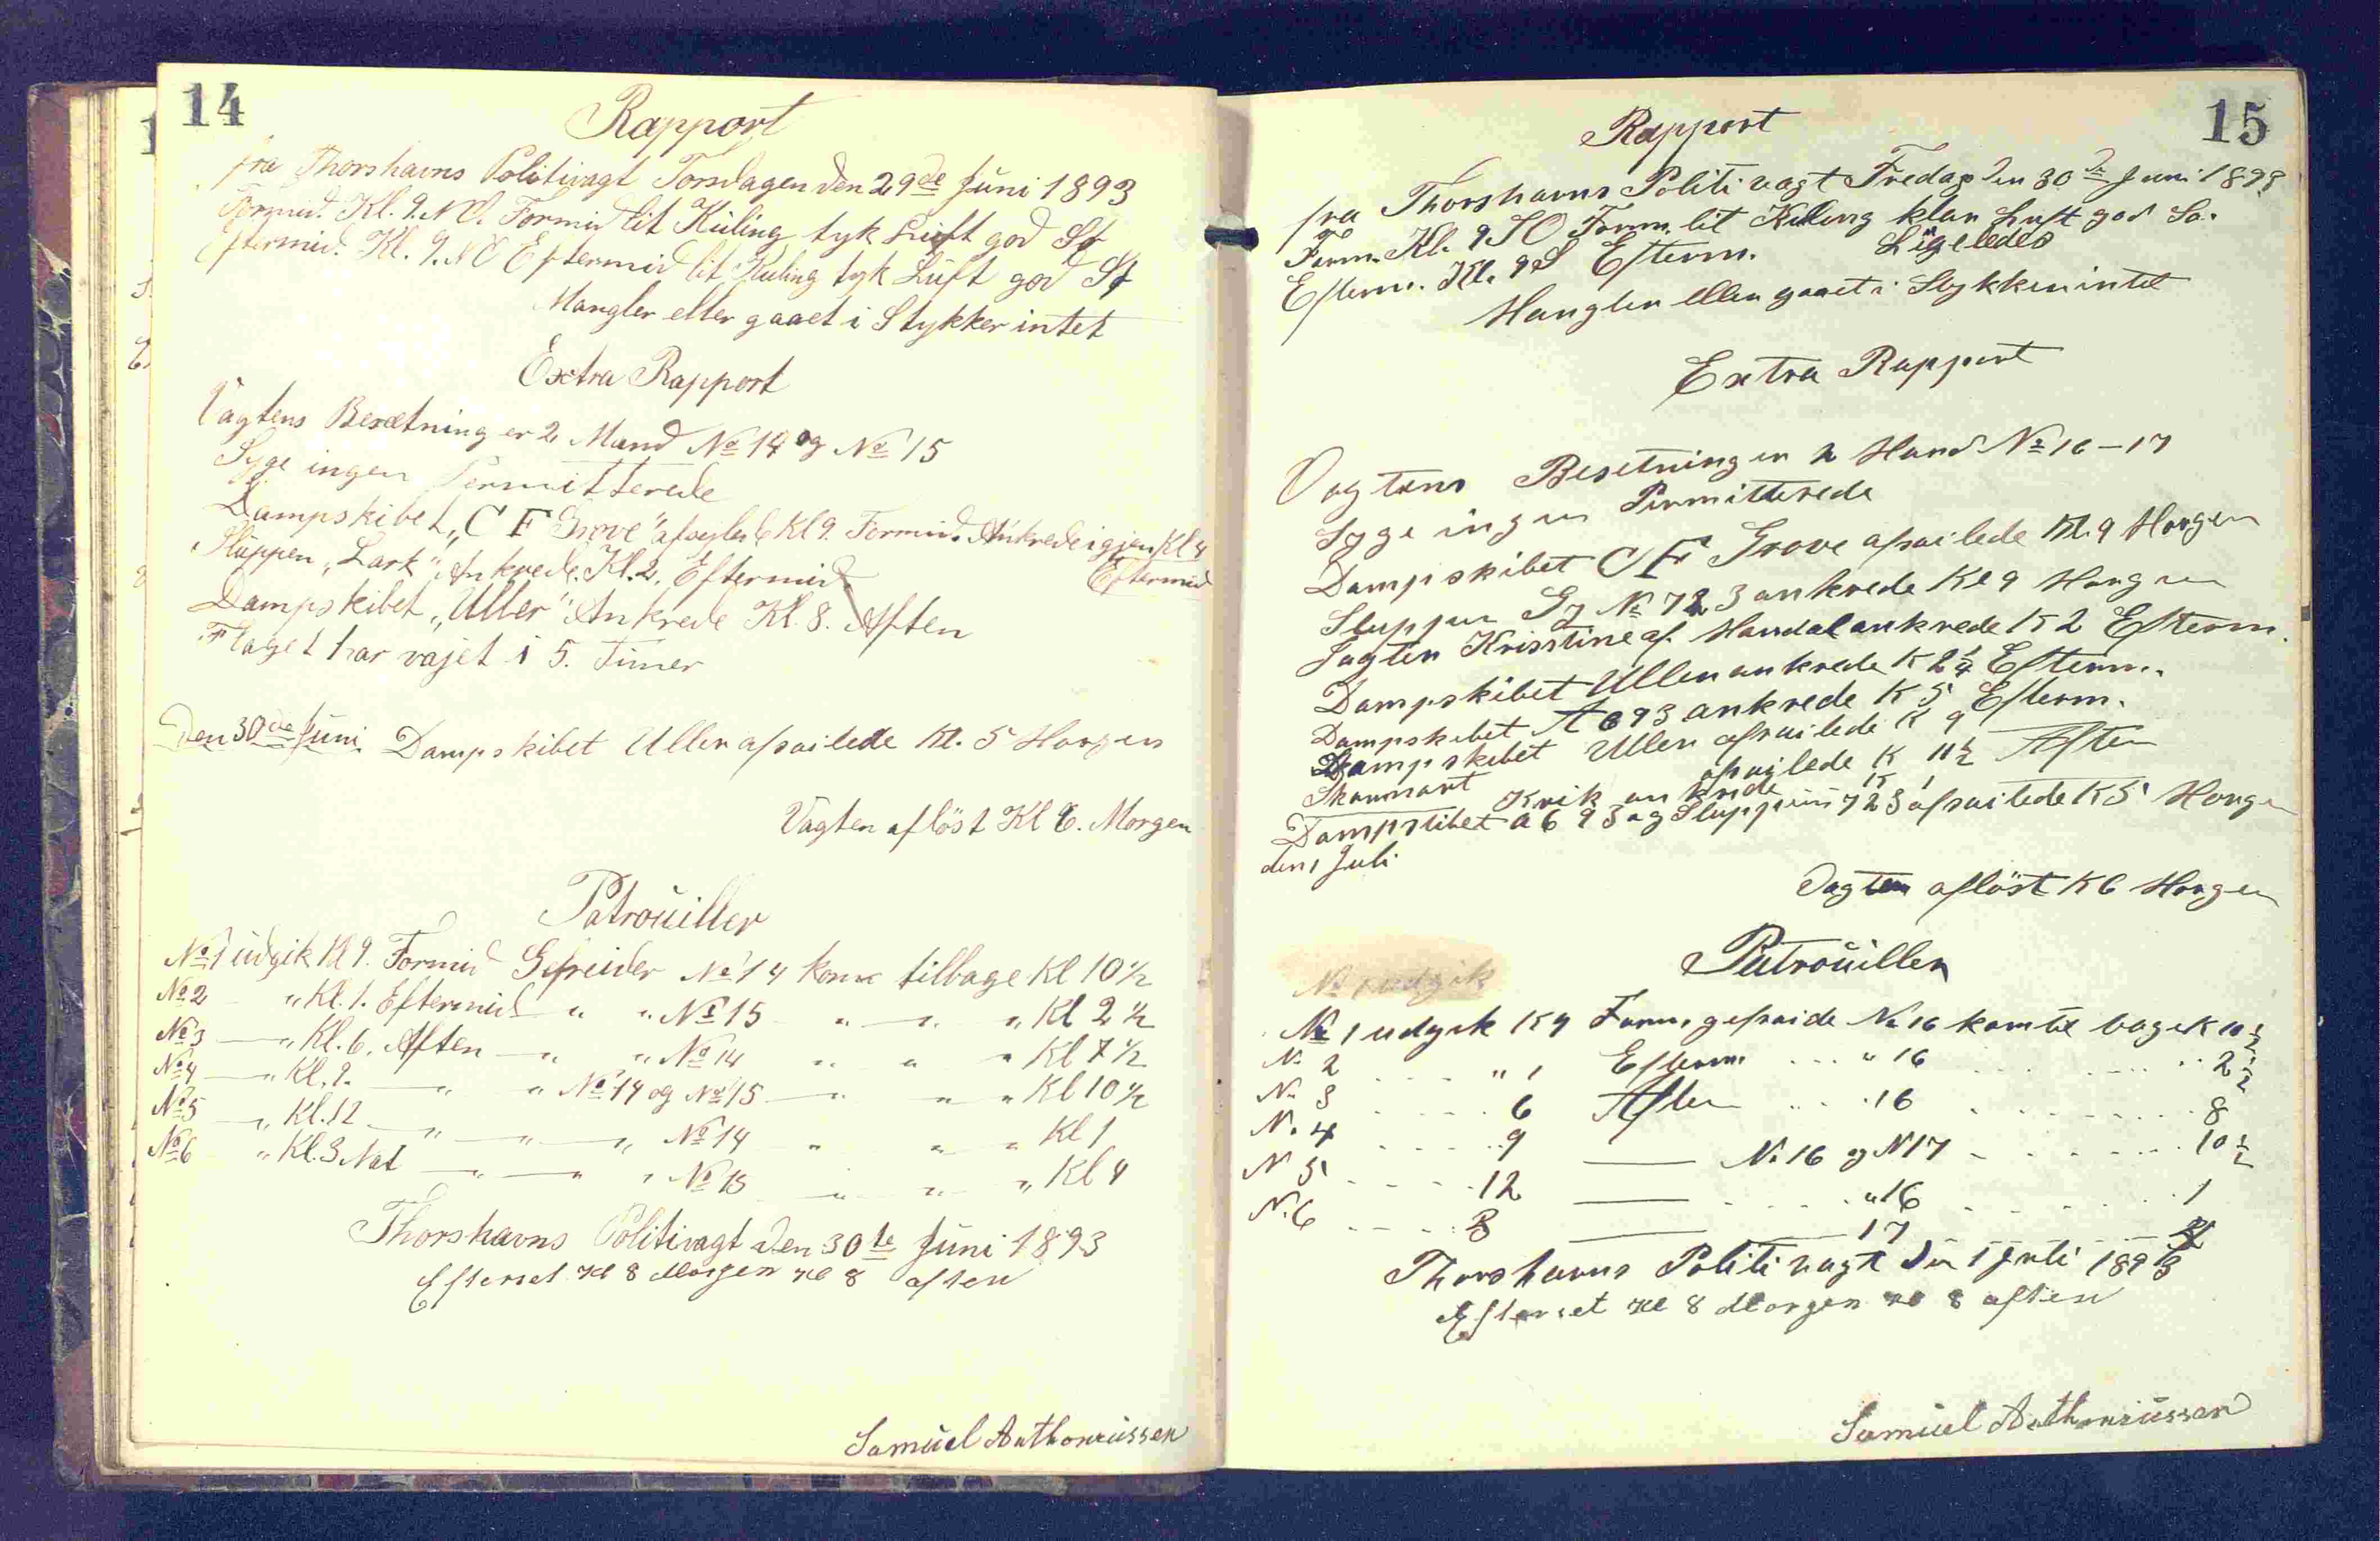 14
Rapport
fra Thorshavns Politivagt Torsdagen den 29de Juni 1893
Formid. Kl. 9. NO. Formid lit Kuling tyk Luft god So
Eftermid. Kl. 9. NO Eftermid lit Kuling tyk Luft god So
Mangler eller gaaet i Stykker intet
Extra Rapport
Vagtens Besætning er 2 Mand No 14 og No 15
Syge ingen Permitterede
Dampskibet „C F Grove" afsejlede Kl 9. Formid. Ankrede igjen Kl 4
Eftermid
Sluppen „Lark" Ankrede. Kl. 2. Eftermid.
Dampskibet „Uller" Ankrede Kl. 8. Aften
Flaget har vajet i 5. Timer
Den 30de Juni. Dampskibet Uller afsailede Kl. 5 Morgen
Vagten aflöst Kl 6. Morgen
Patrouiller
No 1 udgik Kl 9. Formid Gefreider No 14 kom tilbage Kl 10 1/2
No 2 " Kl. 1. Eftermid " " No 15 " " " Kl 2 1/2
No 3 — " Kl. 6. Aften — " " No 14 " " " Kl 7 1/2
No 4 — " Kl. 9. — " " No 14 og No 15 — " " " Kl 10 1/2
No 5 — " Kl. 12 — " — " — " No 14 " " " Kl 1
No 6 " Kl. 3 Nat — " — " " No 15 — " " " Kl 4
Thorshavns Politivagt den 30te Juni 1893
Efterset Kl 8 Morgen Kl 8 aften
Samuel Anthoniussen
15
Rapport
fra Thorshavns Politivagt Fredag den 30de Juni 1893
Form. Kl. 9 SO Form. lit Kuling klar Luft god So.
Efterm. Kl. 9 S Efterm. Ligeledes
Mangler eller gaaet i Stykker intet
Extra Rapport
Vagtens Besetning er 2 Mand No 16 – 17
Syge ingen Permitterede
Dampskibet C F Grove afsailede Kl. 9 Morgen
Sluppen Gy No 723 ankrede Kl 9 Morgen
Jagten Krisstine af Mandal ankrede K 2 Efterm.
Dampskibet Uller ankrede K 2 1/4 Efterm.
Dampskibet A 693 ankrede K 5 Efterm.
Dampskibet Uller afsailede K 9
afsailede K 11 1/2 Aften
ankrede K 1
Dampskibet A 693 og Sluppen 723 afsailede K 5 Morgen
den 1 Juli
Vagten aflöst K 6 Morgen
Patrouiller
No 1 udgik
No 1 udgik K 9 Form. gefraide No 16 kom til bage K 10 1/2
No 2 " 1 Efterm " 16 2 1/2
No 3 6 Aften 16 8
No 4 9 — No 16 og N 17 10 1/2
N 5 12 — " 16 1
N. 6 3 — 17 4
Thorshavns Politivagt den 1 Juli 1893
Efterset Kl 8 Morgen Kl 8 aften
Samuel Anthoniussen